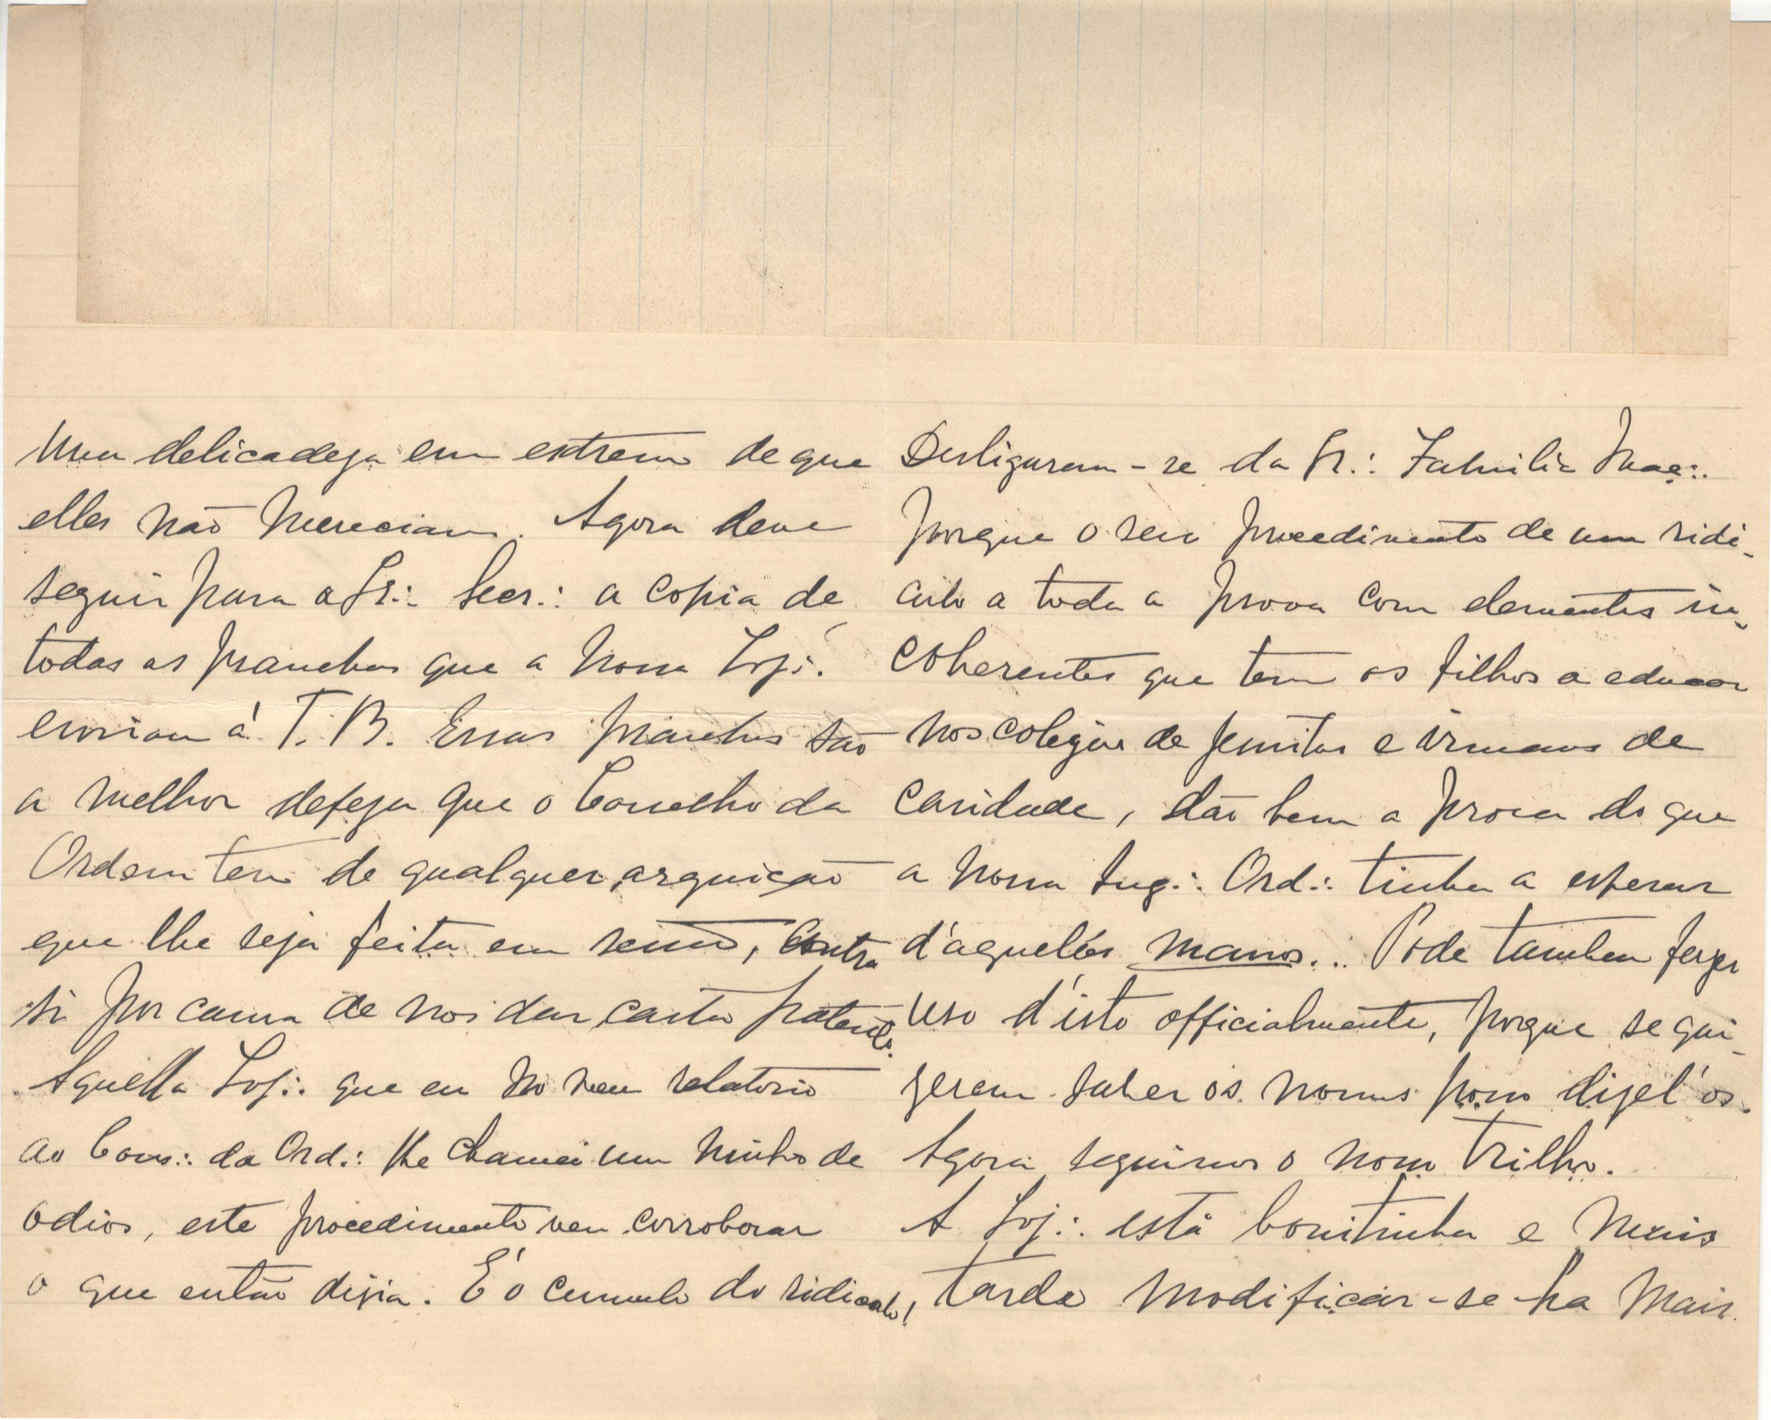 uma delicadeza em extremo de que
elles não mereciam. Agora deve
seguir para a Gr∴ Secr∴ a copia de
todas as pranchas que a nossa Loj∴
enviou á T. B. Essas pranchas são
a melhor defeza que o Conselho da
Ordem tem de qualquer arguição
que lhe seja feita em, contra
si por causa de nos dar carta patente.
Aquella Loj∴ que eu no meu relatorio
ao Cons∴ da Ord∴ lhe chamei um ninho de
odios, este procedimento vem corroborar
o que então dizia. É o cumulo do ridiculo!
Desligaram-se da Gr∴ Familia Maç∴
porque o seu procedimento de um ridi-
culo a toda a prova com elementos in-
coherentes que tem os filhos a educar
nos colegios de jesuitas e irmans de
caridade, dão bem a prova do que
a nossa Aug∴ Ord∴ tinha a esperar
d'aquelles manos... Pode tambem fazer
uso d'isto officialmente, porque se qui-
zerem saber os nomes posso dizel'os.
Agora seguimos o nosso trilho.
A Loj∴ está bonitinha e mais
tarde modificar-se-ha mais